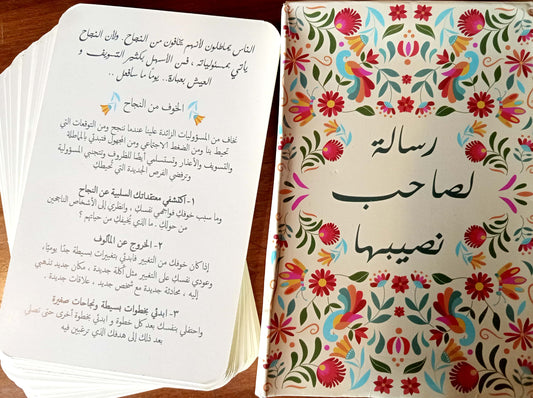 الناس يماطلون لأنهم يخافون من النجاح. ولأن النجاح
يأتي بمسئولياته ، فمن الأسهل بكثير التسويف و
العيش بعبارة.. يوماً ما سأفعل ..
الخوف من النجاح
نخاف من المسؤوليات الزائدة علينا عندما ننجح ومن التوقعات التي
تحيط بنا ومن الضغط الاجتماعي ومن المجهول فتبدئي بالمماطلة
والتسويف والأعذار وتستسلمي أيضًا للظروف وتتجنبي المسؤولية
وترفضي الفرص الجديدة التي تحيطك
١- اكتشفي معتقداتك السلبية عن النجاح
وما سبب خوفك فواجهي نفسك ، وانظري إلى الأشخاص الناجحين
من حولك . ما الذي يخيفك من حياتهم ؟
٢- الخروج عن المألوف
إذا كان خوفك من التغيير فابدئي بتغييرات بسيطة جدًا يوميًا،
وعودي نفسك على التغيير مثل أكلة جديدة ، مكان جديد تذهبي
إليه ، محادثة جديدة مع شخص جديد ، علاقات جديدة .
٣- ابدئي بخطوات بسيطة ونجاحات صغيرة
واحتفلي بنفسك بعد كل خطوة و ابدئي بخطوة أخرى حتى تصلي
بعد ذلك إلى هدفك الذي ترغبين فيه
رسالة
لصاحب
نصيبها